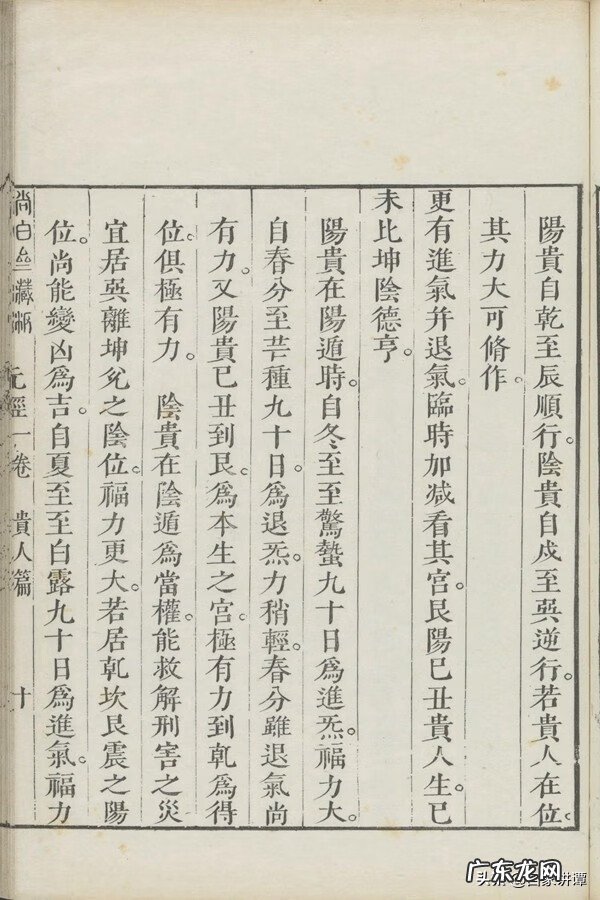 陽貴自乾至辰順行。陰貴自戌至巽逆行。若貴人在位。
其力大可脩作。
更有進氣并退氣。臨時加减看其宮。艮陽已丑貴人生。已
未比坤陰德亨。
陽貴在陽遁時。自冬至至驚蟄九十日爲進炁。福力大。
自春分至芒種九十日。爲退炁。力稍輕。春分雖退氣尚
有力。又陽貴已丑到艮。爲本生之宮。極有力到乹爲得
位。俱極有力。　陰貴在陰遁爲當權。能救解刑害之災
宜居巽離坤兌之陰位。福力更大。若居乹坎艮震之陽
位。尚能變凶爲吉。自夏至至白露九十日爲進氣。福力
元經一卷　貴人篇　十
广东龙网